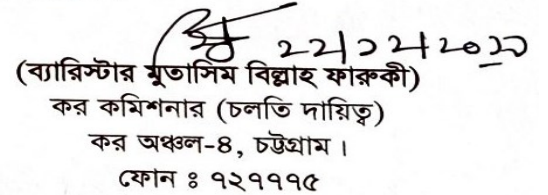 (ব্যারিস্টার মুতাসিম বিল্লাহ ফারুকী)
কর কমিশনার (চলতি দায়িত্ব)
কর অঞ্চল-৪, চট্টগ্রাম ।
ফোন ঃ ৭২৭৭৭৫